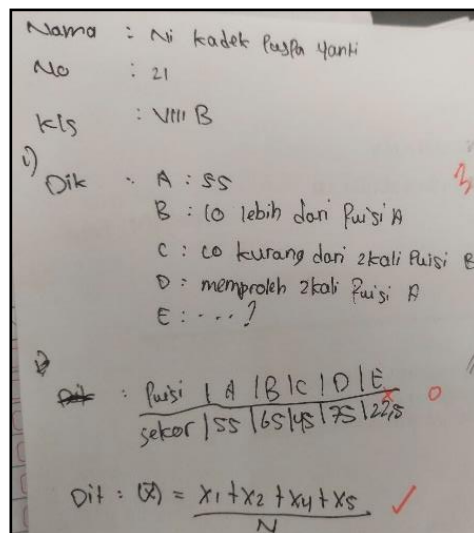 Nama : Ni kadek Puspa Yanti
No : 21
Kls : VIII B
1) Dik : A : 55
3
B : 10 lebih dari Puisi A
C : 10 kurang dari 2kali Puisi B
D : memproleh 2kali Puisi A
E : ....?
: Puisi | A | B | C | D | E
sekor | 55 | 65 | 45 | 75 | 22,5
0
Dit : (x̄) = x1 + x2 + x4 + x5
N